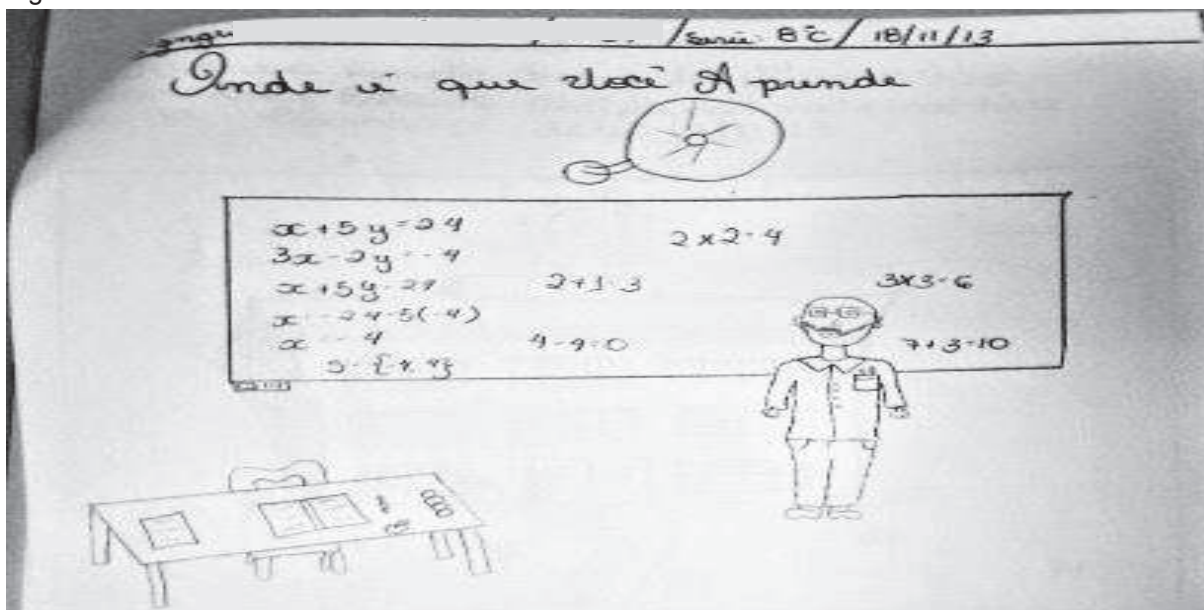 / Série: 8ºC / 18/11/13
Onde é que você Aprende
x+5y=24
3x-2y=-4
x+5y=24
x=-24-5(-4)
x=-4
2x2=4
2+1=3
3x3=6
4-4=0
7+3=10